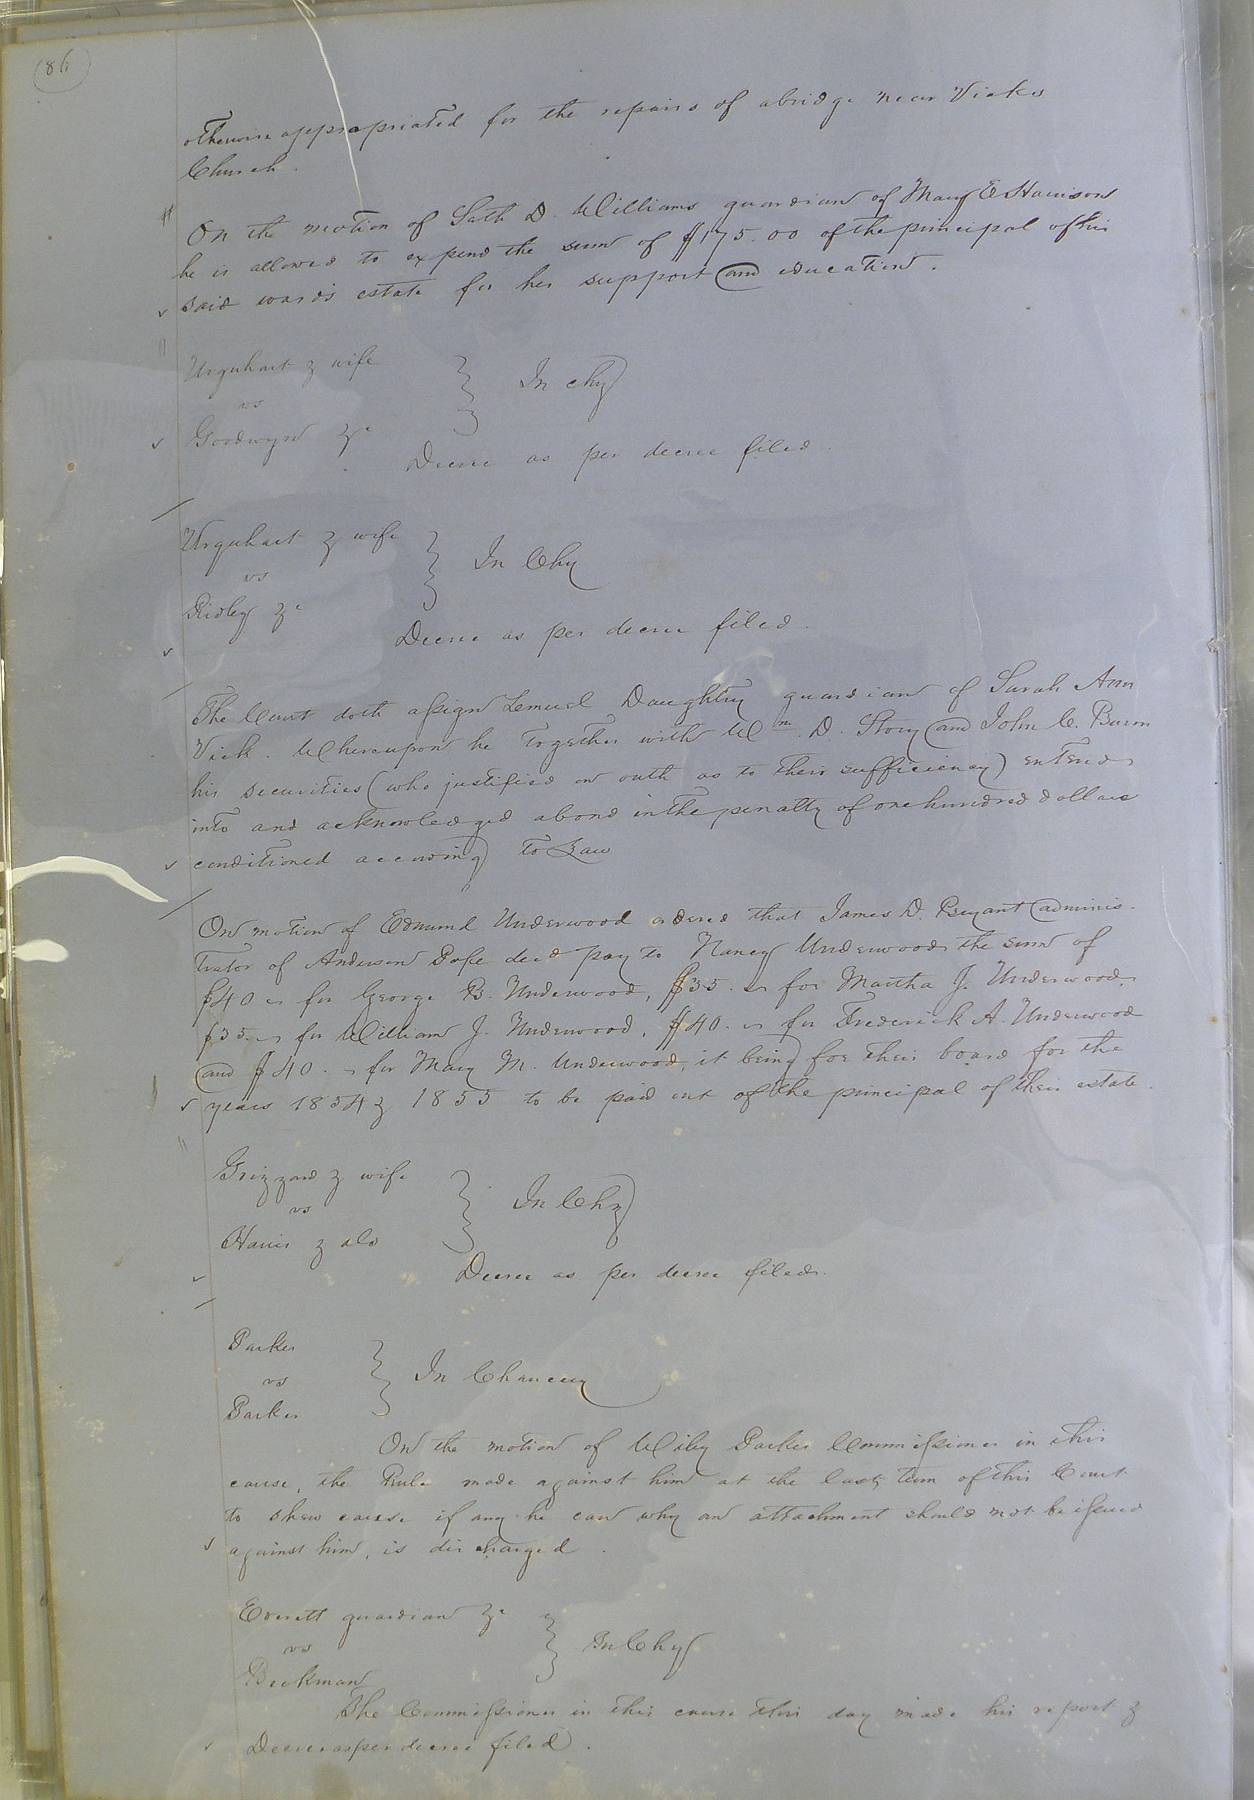 86
otherwise appropriated for the repairs of a bridge near Vicks
Church.
On the motion of Seth D. Williams guardian of Mary E Harrison
he is allowed to expend the sum of $175.00 of the principal of his
said ward's estate for her support and education.
Urquhart & wife
vs
Goodwyn &c
In chy
Decree as per decree filed.
Urquhart & wife
vs
Ridley &c
In Chy
Decree as per decree filed.
The Court doth assign Lemuel Daughtry guardian of Sarah Ann
Vick. Whereupon he together with Wm. D. Story and John C.
his securities (who justified on oath as to their sufficiency) entered
into and acknowledged a bond in the penalty of one hundred dollars
conditioned according to Law
On motion of Edmund Underwood ordered that James D. Bryant adminis-
trator of Anderson Pope decd pay to Nancy Underwood the sum of
$40 for George B. Underwood, $35. for Martha J. Underwood,
$35. for William J. Underwood, $40. for Frederick A. Underwood
and $40. for Mary M. Underwood, it being for their board for the
years 1854 & 1855 to be paid out of the principal of their estate.
Grizzard & wife
vs
Harris & als
In Chy
Decree as per decree filed.
Parker
vs
Parker
In Chancery
On the motion of Wiley Parker Commissioner in this
cause, the Rule made against him at the last term of this Court
to shew cause if any he can why an attachment should not be issued
against him, is discharged.
Everett guardian &c
vs
Beekman
In Chy
The Commissioner in this cause this day made his report &
Decree as per decree filed.